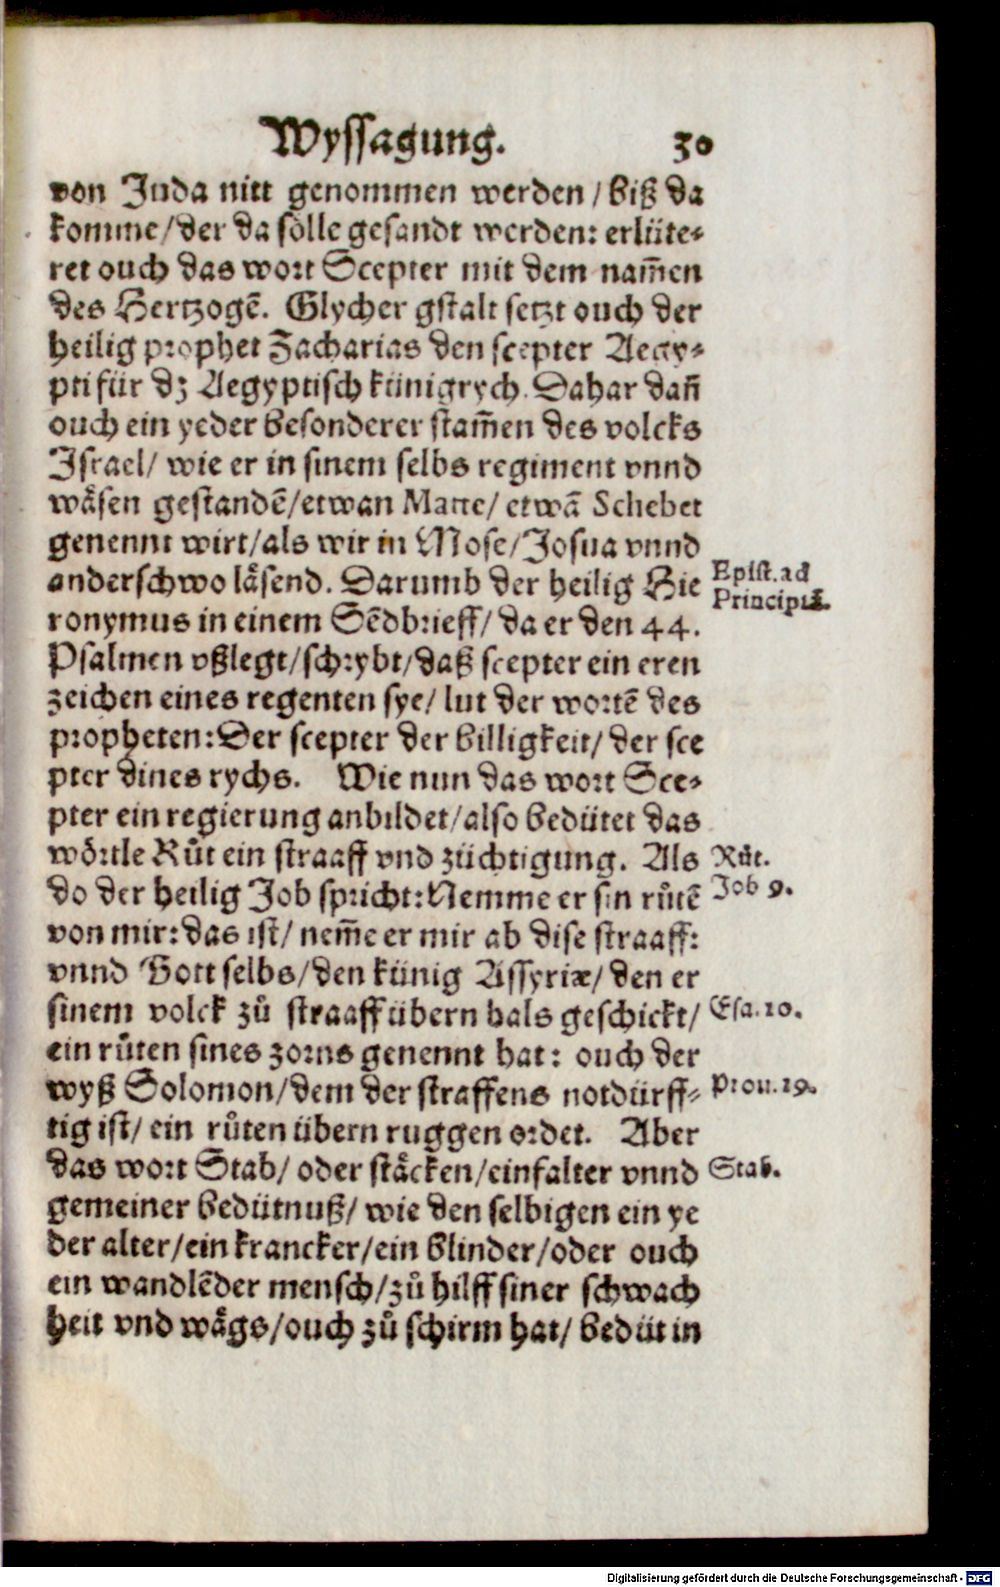 Wyssagung. 30
von Juda nitt genommen werden / biß da
komme/der da sölle gesandt werden: erlüte-
ret ouch das wort Scepter mit dem nam̃en
des Hertzogẽ. Glycher gstalt setzt ouch der
heilig prophet Zacharias den scepter Aegy-
pti für dz Aegyptisch künigrych. Dahar dañ
ouch ein yeder besonderer stam̃en des volcks
Israel/ wie er in sinem selbs regiment vnnd
wåsen gestandẽ/etwan Matte/ etwã Schebet
genennt wirt/als wir in Mose/Josua vnnd
anderschwo låsend. Darumb der heilig Hie
Epist. ad
Principiã.
ronymus in einem Sẽdbrieff/ da er den 44.
Psalmen vßlegt/schrybt/daß scepter ein eren
zeichen eines regenten sye/ lut der wortẽ des
propheten: Der scepter der billigkeit/ der sce
pter dines rychs. Wie nun das wort Sce-
pter ein regierung anbildet/also bedütet das
wörtle Růt ein straaff vnd züchtigung. Als
Růt.
do der heilig Job spricht: Nemme er sin růtẽ
Job 9.
von mir: das ist/ nem̃e er mir ab dise straaff:
vnnd Gott selbs/den künig Assyriæ/ den er
sinem volck zů straaff übern hals geschickt/
Esa. 10.
ein růten sines zorns genennt hat: ouch der
wyß Solomon/dem der straffens notdürff-
Prou. 19.
tig ist/ ein růten übern ruggen ordet. Aber
das wort Stab/ oder ståcken/einfalter vnnd
Stab.
gemeiner bedütnuß/ wie den selbigen ein ye
der alter/ein krancker/ein blinder/oder ouch
ein wandlẽder mensch/zů hilff siner schwach
heit vnd wågs/ouch zů schirm hat/ bedüt in
Digitalisierung gefördert durch die Deutsche Forschungsgemeinschaft - DFG